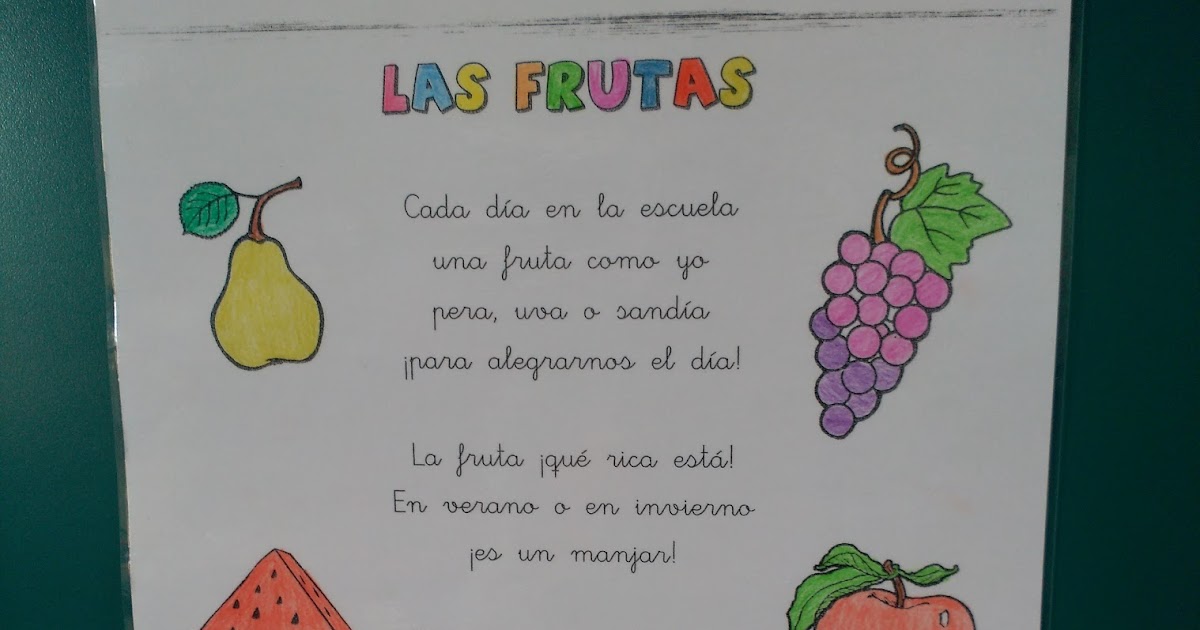 LAS FRUTAS
Cada día en la escuela
una fruta como yo
pera, uva o sandía
¡para alegrarnos el día!
La fruta ¡qué rica está!
En verano o en invierno
¡es un manjar!